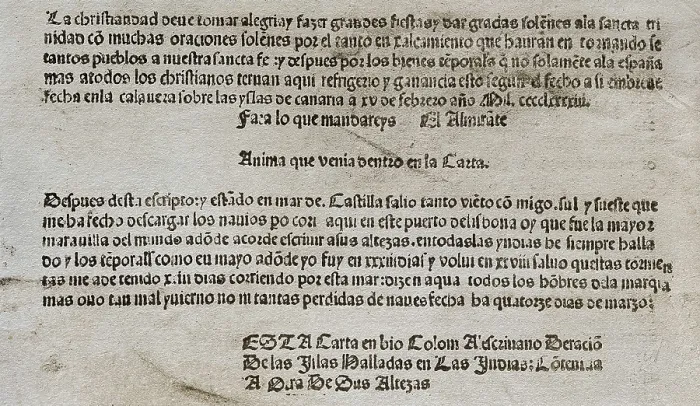 La christiandad deue tomar alegria y fazer grandes fiestas y dar gracias solẽnes ala sancta tri
nidad cõ muchas oraciones solẽnes por el tanto en xalçamiento que hauran en tornando se
tantos pueblos a nuestra sancta fe: y despues por los bienes tẽporales q̃ no solamẽte ala españa
mas atodos los christianos ternan aqui refrigerio y ganancia esto segun el fecho a si embreue
fecha enla calauera sobre las yslas de canaria a xv de febrero año Mil. cccclxxxxiii.
Fara lo que mandareys El Almirãte
Anima que venia dentro en la Carta.
Despues desta escripto: y estãdo en mar de. Castilla salio tanto viẽto cõ migo. sul y sueste que
me ha fecho descargar los nauios po cori aqui en este puerto delisbona oy que fue la mayor
marauilla del mundo adõde acorde escriuir asus altezas. entodas las yndias he siempre halla
do y los tẽporales como en mayo adõde yo fuy en xxxiii dias y volui en xxviii saluo questas tormen
tas me ã de tenido xiiii dias corriendo por esta mar: dizen aqua todos los hõbres dela mar q̃ ia
mas ouo tan mal yuierno no ni tantas perdidas de naues fecha ha quatorze dias de marzo:
ESTA Carta en bio Colom A'escriuano Deraciõ
De las Islas Halladas en Las Indias: Cõtenida
A Otra De Sus Altezas